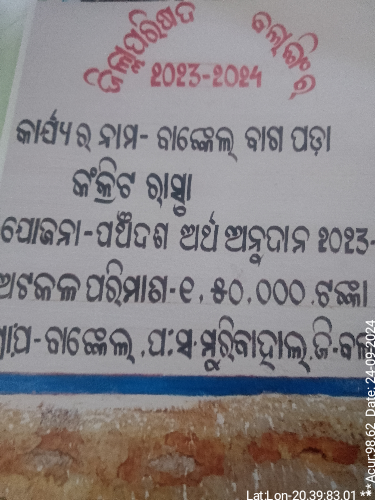 ଜିଲ୍ଲାପରିଷଦ ବଲାଙ୍ଗିର
୨୦୨୩-୨୦୨୪
କାର୍ଯ୍ୟର ନାମ- ବାଙ୍କେଲ୍ ବାଗ ପଡ଼ା
କଂକ୍ରିଟ ରାସ୍ତା
ଯୋଜନା-ପଞ୍ଚଦଶ ଅର୍ଥ ଅନୁଦାନ ୨୦୨୩-
ଅଟକଳ ପରିମାଣ-୧,୫୦,୦୦୦.ଟଙ୍କା
ଗ୍ରା.ପ-ବାଙ୍କେଲ୍.ପଂ.ସ.ମୁରିବାହାଲ୍.ଜି-ବଲ
Lat:Lon-20.39:83.01 ***Acur:98.62 Date: 24-09-2024